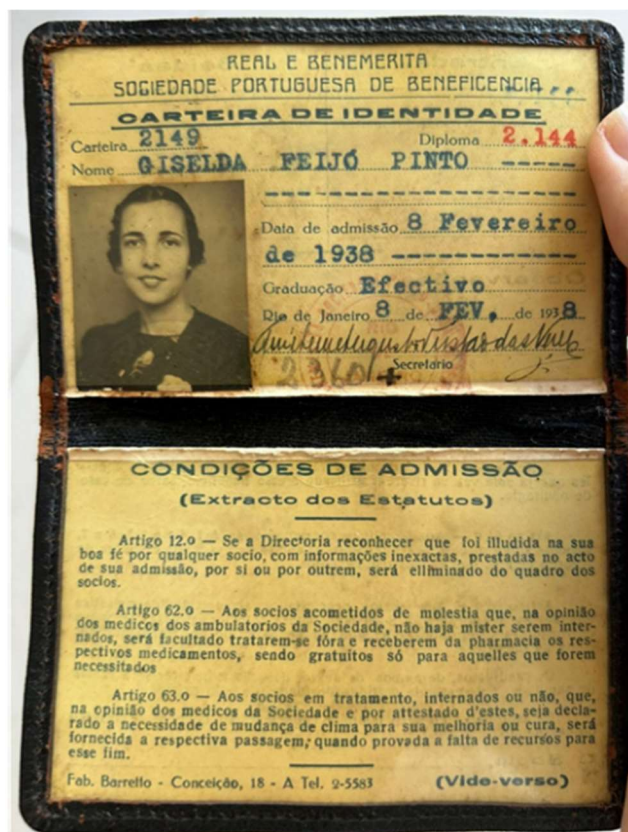 REAL E BENEMERITA
SOCIEDADE PORTUGUESA DE BENEFICENCIA
CARTEIRA DE IDENTIDADE
Carteira 2149 Diploma 2.144
Nome GISELDA FEIJÓ PINTO -----
Data de admissão 8 Fevereiro
de 1938 -------------
Graduação Efectivo
Rio de Janeiro 8 de FEV. de 1938
Secretario
CONDIÇÕES DE ADMISSÃO
(Extracto dos Estatutos)
Artigo 12.o — Se a Directoria reconhecer que foi illudida na sua
boa fé por qualquer socio, com informações inexactas, prestadas no acto
de sua admissão, por si ou por outrem, será elliminado do quadro dos
socios.
Artigo 62.o — Aos socios acometidos de molestia que, na opinião
dos medicos dos ambulatorios da Sociedade, não haja mister serem inter-
nados, será facultado tratarem-se fóra e receberem da pharmacia os res-
pectivos medicamentos, sendo gratuitos só para aquelles que forem
necessitados
Artigo 63.o — Aos socios em tratamento, internados ou não, que,
na opinião dos medicos da Sociedade e por attestado d'estes, seja decla-
rado a necessidade de mudança de clima para sua melhoria ou cura, será
fornecida a respectiva passagem, quando provada a falta de recursos para
esse fim.
Fab. Barretto - Conceição, 18 - A Tel. 2-5583 (Vide-verso)